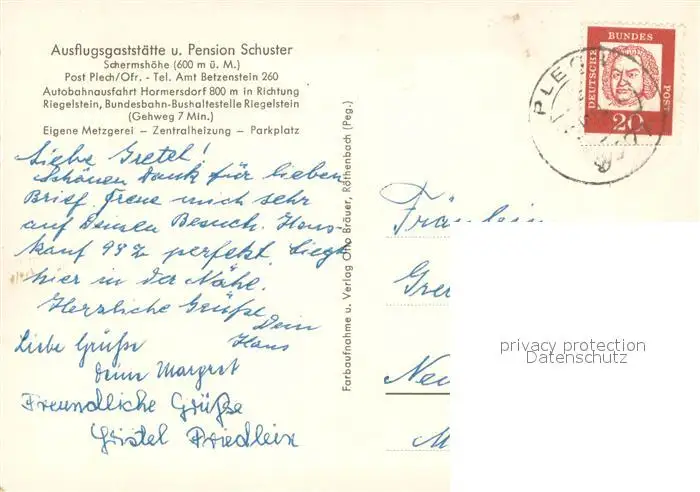 Ausflugsgaststätte u. Pension Schuster
Schermshöhe (600 m ü. M.)
Post Plech/Ofr. - Tel. Amt Betzenstein 260
Autobahnausfahrt Hormersdorf 800 m in Richtung
Riegelstein, Bundesbahn-Bushaltestelle Riegelstein
(Gehweg 7 Min.)
Eigene Metzgerei – Zentralheizung – Parkplatz
Liebe Gretel!
Schönen Dank für lieben
Brief. Freue mich sehr
auf Deinen Besuch. Haus-
kauf perfekt. Liegt
hier in der Nähe.
Herzliche Grüße
Dein
Hans
Liebe Grüße
Deine Margret
Freundliche Grüße
Gristel Friedlein
Farbaufnahme u. Verlag Otto Bräuer, Röthenbach (Peg.)
DEUTSCHE
BUNDES
POST
20
PLECH
Fräulein
Gre
Neu
M
privacy protection
Datenschutz